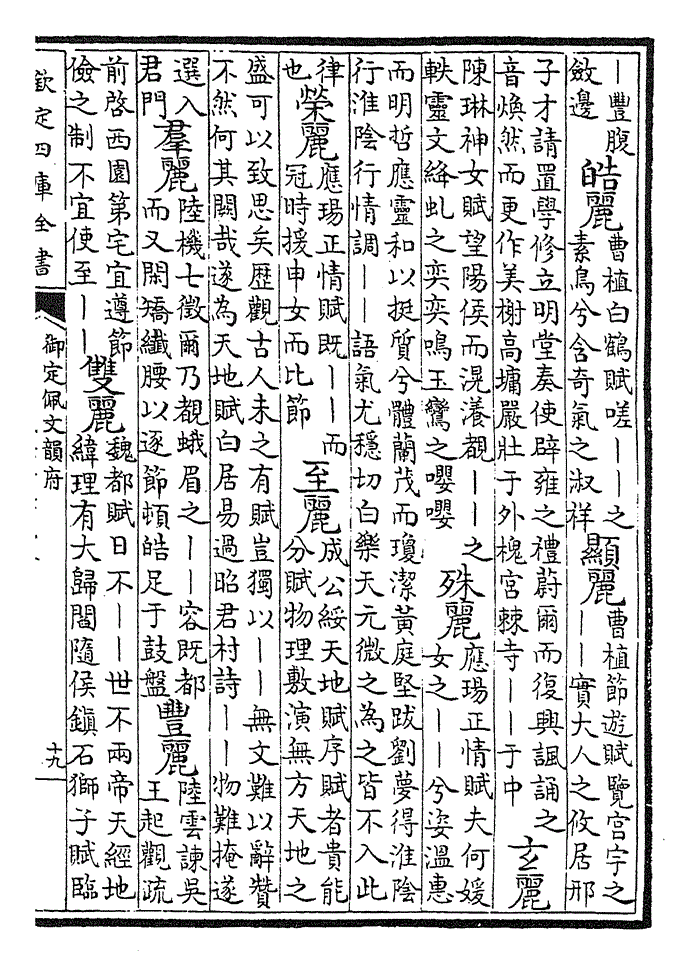 ｜豐腹
斂邊
皓麗
曹植白鶴賦嗟｜｜之
素鳥兮含奇氣之淑祥
顯麗
曹植節遊賦覽宮宇之
｜｜實大人之攸居邢
子才請置學修立明堂奏使辟雍之禮蔚爾而復興諷誦之
音煥然而更作美榭高墉嚴壯于外槐宮棘寺｜｜于中
玄麗
陳琳神女賦望陽侯而滉瀁覩｜｜之
軼靈文絳虬之奕奕鳴玉鸞之嚶嚶
殊麗
應瑒正情賦夫何媛
女之｜｜兮姿溫惠
而明哲應靈和以挺質兮體蘭茂而瓊潔黃庭堅跋劉夢得淮陰
行淮陰行情調｜｜語氣尤穩切白樂天元微之為之皆不入此
律
也
榮麗
應瑒正情賦既｜｜而
冠時援申女而比節
至麗
成公綏天地賦序賦者貴能
分賦物理敷演無方天地之
盛可以致思矣歷觀古人未之有賦豈獨以｜｜無文難以辭贊
不然何其闕哉遂為天地賦白居易過昭君村詩｜｜物難掩遂
選入
君門
羣麗
陸機七徵爾乃覩蛾眉之｜｜容既都
而又閑矯纖腰以逐節頓皓足于鼓盤
豐麗
陸雲諫吳
王起觀疏
前啓西園第宅宜遵節
儉之制不宜使至｜｜
雙麗
魏都賦日不｜｜世不兩帝天經地
緯理有大歸閻隨侯鎮石獅子賦臨
欽定四庫全書
御定佩文韻府
十九